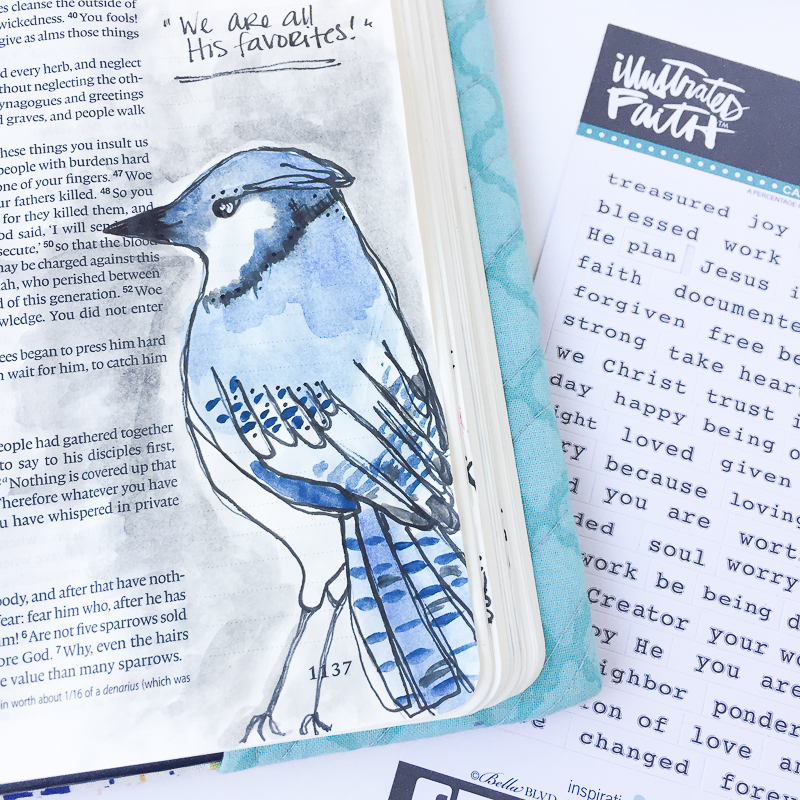 "We are all
His favorites!"
cleanse the outside of
wickedness. 40 You fools!
give as alms those things
every herb, and neglect
without neglecting the oth-
synagogues and greetings
graves, and people walk
these things you insult us
people with burdens hard
one of your fingers. 47 Woe
fathers killed. 48 So you
for they killed them, and
said, 'I will send
50 so that the blood
may be charged against this
who perished between
of this generation. 52 Woe
You did not enter
began to press him hard
wait for him, to catch him
people had gathered together
to say to his disciples first,
"Nothing is covered up that
Therefore whatever you have
you have whispered in private
body, and after that have noth-
fear: fear him who, after he has
6 Are not five sparrows sold
God. 7 Why, even the hairs
value than many sparrows.
in worth about 1/16 of a denarius (which was
1137
illustrated
Faith™
A PERCENTAGE
treasured joy
blessed work
He plan Jesus
faith
forgiven free
strong take
we Christ trust
day happy being
loved given
because loving
you are
soul worry
work be being
Creator your
He you are
ponder
of love
changed
©Bella BLVD